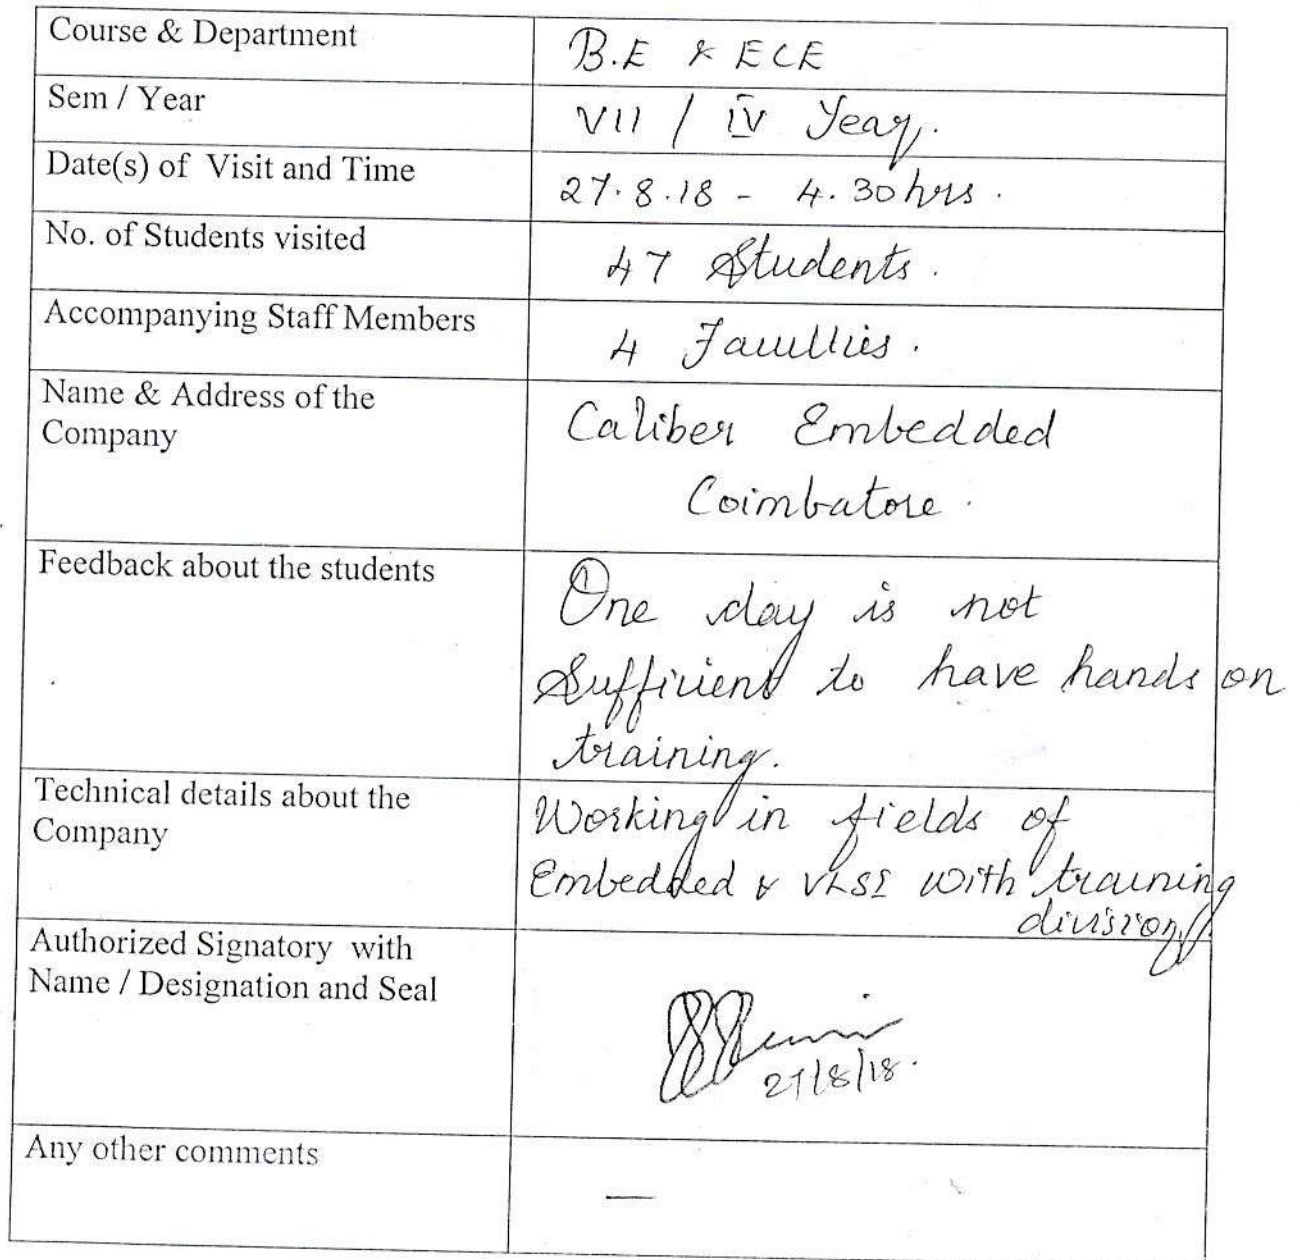 Course & Department
B.E & ECE
Sem / Year
VII / IV Year.
Date(s) of Visit and Time
27.8.18 - 4.30 hrs.
No. of Students visited
47 Students.
Accompanying Staff Members
4 Faculties.
Name & Address of the
Company
Caliber Embedded
Coimbatore.
Feedback about the students
One day is not
Sufficient to have hands on
training.
Technical details about the
Company
Working in fields of
Embedded & VLSI with training
division//.
Authorized Signatory with
Name / Designation and Seal
27/8/18.
Any other comments
—